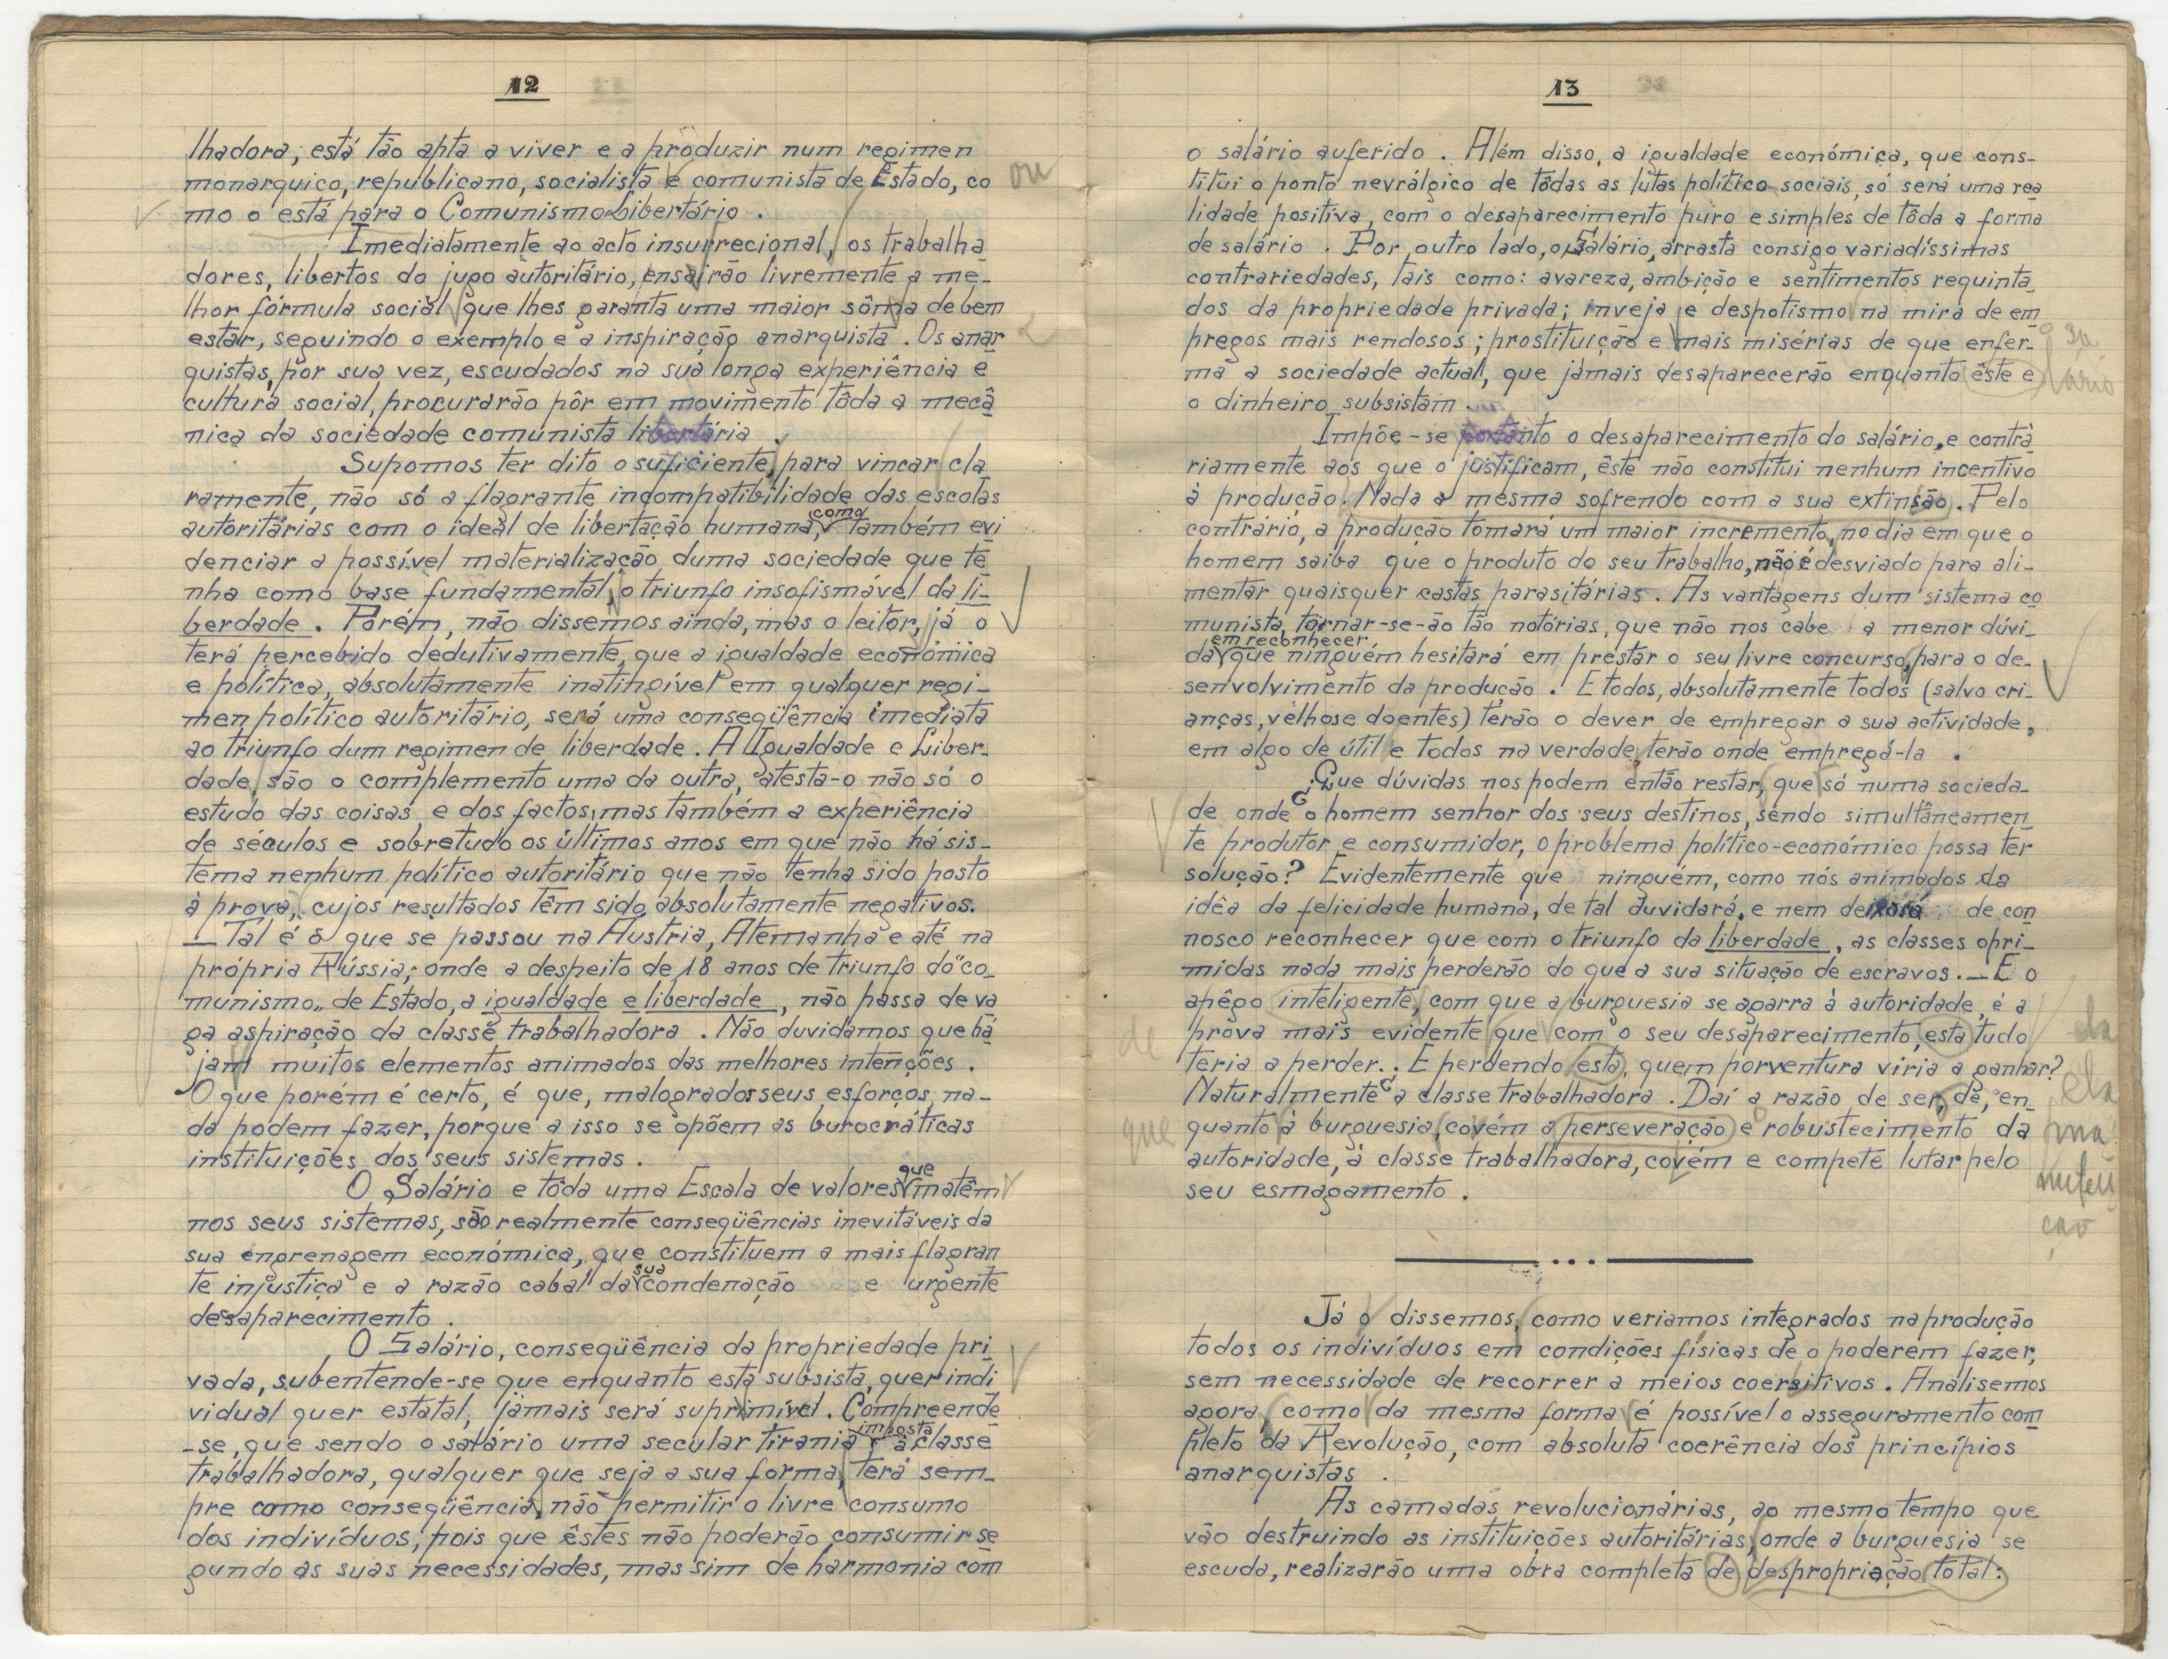 12
lhadora, está tão apta a viver e a produzir num regimen
monarquico, republicano, socialista e comunista de Estado, co ou
mo o está para o Comunismo Libertário .
Imediatamente ao acto insurrecional, os trabalha
dores, libertos do jugo autoritário, ensairão livremente a me-
lhor fórmula social que lhes garanta uma maior sôma de bem
estar, seguindo o exemplo e a inspiração anarquista . Os anar
quistas, por sua vez, escudados na sua longa experiência e
cultura social, procurarão pôr em movimento tôda a mecâ
nica da sociedade comunista libertária .
Supomos ter dito o suficiente, para vincar cla
ramente, não só a flagrante incompatibilidade das escolas
autoritárias com o ideal de libertação humana, como também evi
denciar a possível materialização duma sociedade que te
nha como base fundamental, o triunfo insofismável da li-
berdade . Porém, não dissemos ainda, mas o leitor, já o
terá percebido dedutivamente, que a igualdade económica
e política, absolutamente inatingível em qualquer regi-
men político autoritário, será uma conseqüência imediata
ao triunfo dum regimen de liberdade . A Igualdade e Liber-
dade, são o complemento uma da outra, atesta-o não só o
estudo das coisas e dos factos, mas também a experiência
de séculos e sobretudo os últimos anos em que não há sis-
tema nenhum político autoritário que não tenha sido posto
à prova, cujos resultados têm sido absolutamente negativos.
— Tal é o que se passou na Austria, Alemanha e até na
própria Rússia, onde a despeito de 18 anos de triunfo do "co-
munismo" de Estado, a igualdade e liberdade, não passa de va
ga aspiração da classe trabalhadora . Não duvidamos que ha
jam muitos elementos animados das melhores intenções .
O que porém é certo, é que, malogrados seus esforços, na-
da podem fazer, porque a isso se opõem as burocráticas
instituições dos seus sistemas .
O Salário e tôda uma Escala de valores que matêm
nos seus sistemas, são realmente conseqüências inevitáveis da
sua engrenagem económica, que constituem a mais flagran
te injustiça e a razão cabal da sua condenação e urgente
desaparecimento .
O Salário, conseqüência da propriedade pri
vada, subentende-se que enquanto esta subsista, quer indi
vidual quer estatal, jàmais será suprimível . Compreende
-se, que sendo o salário uma secular tirania imposta à classe
trabalhadora, qualquer que seja a sua forma, terá sem-
pre como conseqüência, não permitir o livre consumo
dos indivíduos, pois que êstes não poderão consumir se
gundo as suas necessidades, mas sim de harmonia com
13
o salário auferido . Além disso, a igualdade económica, que cons-
titui o ponto nevrálgico de tôdas as lutas político-sociais, só será uma rea
lidade positiva, com o desaparecimento puro e simples de tôda a forma
de salário . Por outro lado, o Salário, arrasta consigo variadíssimas
contrariedades, tais como: avareza, ambição e sentimentos requinta
dos da propriedade privada; inveja e despotismo na mira de em
pregos mais rendosos; prostituição e mais misérias de que enfer-
ma a sociedade actual, que jàmais desaparecerão enquanto êste e o salário
o dinheiro subsistam .
Impõe-se portanto o desaparecimento do salário, e contrà
riamente aos que o justificam, êste não constitui nenhum incentivo
à produção . Nada a mesma sofrendo com a sua extinsão . Pelo
contrário, a produção tomará um maior incremento, no dia em que o
homem saiba que o produto do seu trabalho, não é desviado para ali-
mentar quaisquer castas parasitárias . As vantagens dum sistema co
munista, tornar-se-ão tão notórias, que não nos cabe a menor dúvi-
da em reconhecer que ninguém hesitará em prestar o seu livre concurso, para o de-
senvolvimento da produção . E todos, absolutamente todos (salvo cri-
anças, velhos e doentes) terão o dever de empregar a sua actividade,
em algo de útil e todos na verdade, terão onde empregá-la .
¿Que dúvidas nos podem então restar, que só numa socieda-
de onde o homem senhor dos seus destinos, sendo simultâneamen
te produtor e consumidor, o problema político-económico possa ter
solução? Evidentemente que ninguém, como nós animados da
idêa da felicidade humana, de tal duvidará, e nem deixará de con
nosco reconhecer que com o triunfo da liberdade, as classes opri-
midas nada mais perderão do que a sua situação de escravos . — E o
apêgo inteligente, com que a burguesia se agarra à autoridade, é a
prova mais evidente que com o seu desaparecimento, esta tudo ela
de
teria a perder . ¿E perdendo esta, quem porventura viria a ganhar? ela
Naturalmente a classe trabalhadora . Daí a razão de ser, de, en-
que quanto à burguesia, covém a perseveração e robustecimento da manutenção
autoridade, à classe trabalhadora, covém e compete lutar pelo
seu esmagamento .
Já o dissemos, como veriamos integrados na produção
todos os indivíduos em condições físicas de o poderem fazer,
sem necessidade de recorrer a meios coersitivos . Analisemos
agora, como da mesma forma é possível o asseguramento com
pleto da Revolução, com absoluta coerência dos princípios
anarquistas .
As camadas revolucionárias, ao mesmo tempo que
vão destruindo as instituições autoritárias, onde a burguesia se
escuda, realizarão uma obra completa de despropriação total: